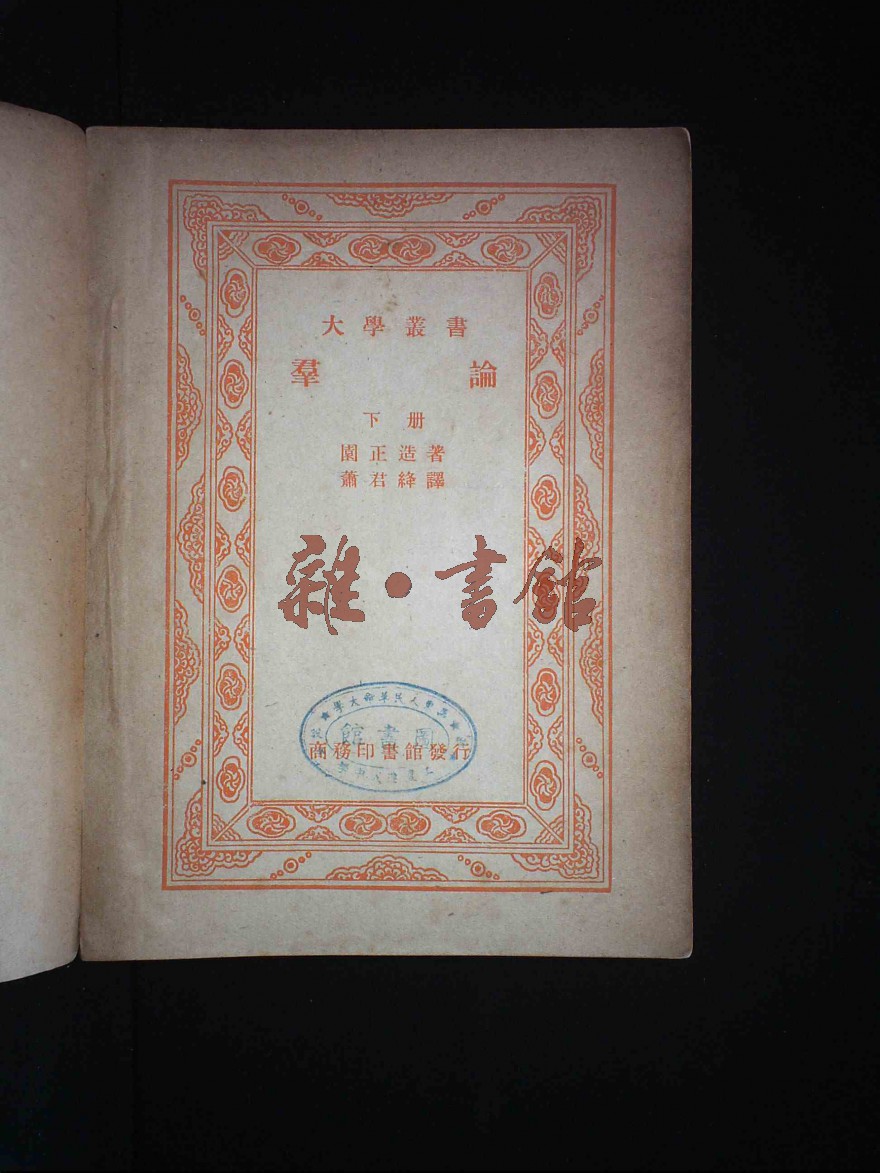 大學叢書
羣論
下册
園正造著
蕭君絳譯
雜·書館
圖書館
商務印書館發行